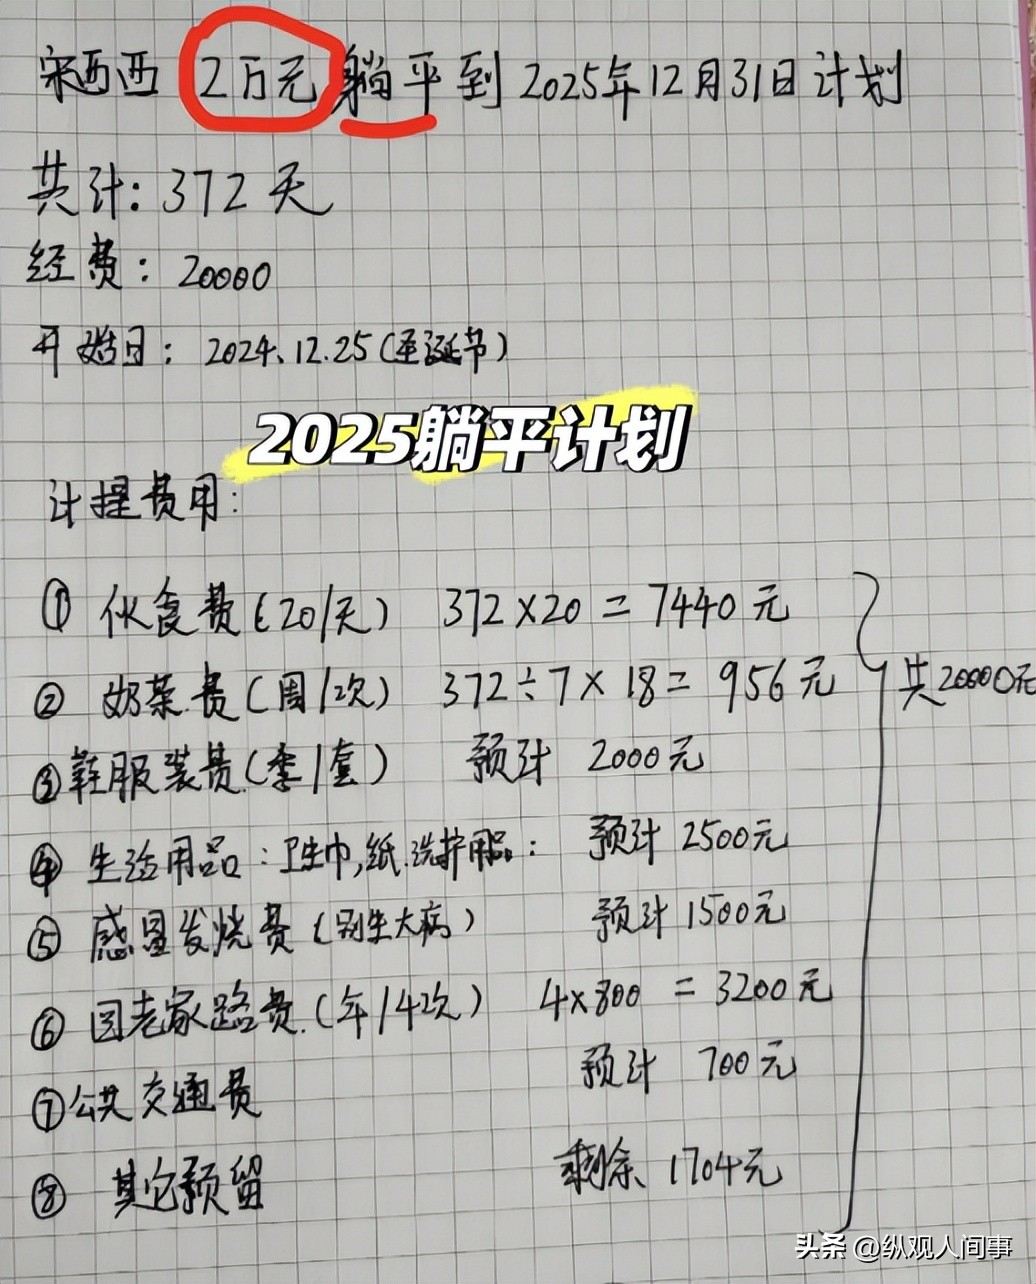 宋西西 2万元 躺平到 2025年12月31日计划
共计: 372天
经费: 20000
开始日: 2024.12.25(圣诞节)
2025躺平计划
计提费用:
① 伙食费(20/天) 372×20=7440元
② 奶茶费(周/次) 372÷7×18=956元
共20000元
③鞋服装费(季/套) 预计 2000元
④ 生活用品:卫生巾,纸,洗护用品: 预计2500元
⑤ 感冒发烧费(别生大病) 预计1500元
⑥ 回老家路费.(年/4次) 4×800=3200元
⑦公共交通费 预计 700元
⑧ 其它预留 剩余 1704元
头条 @纵观人间事